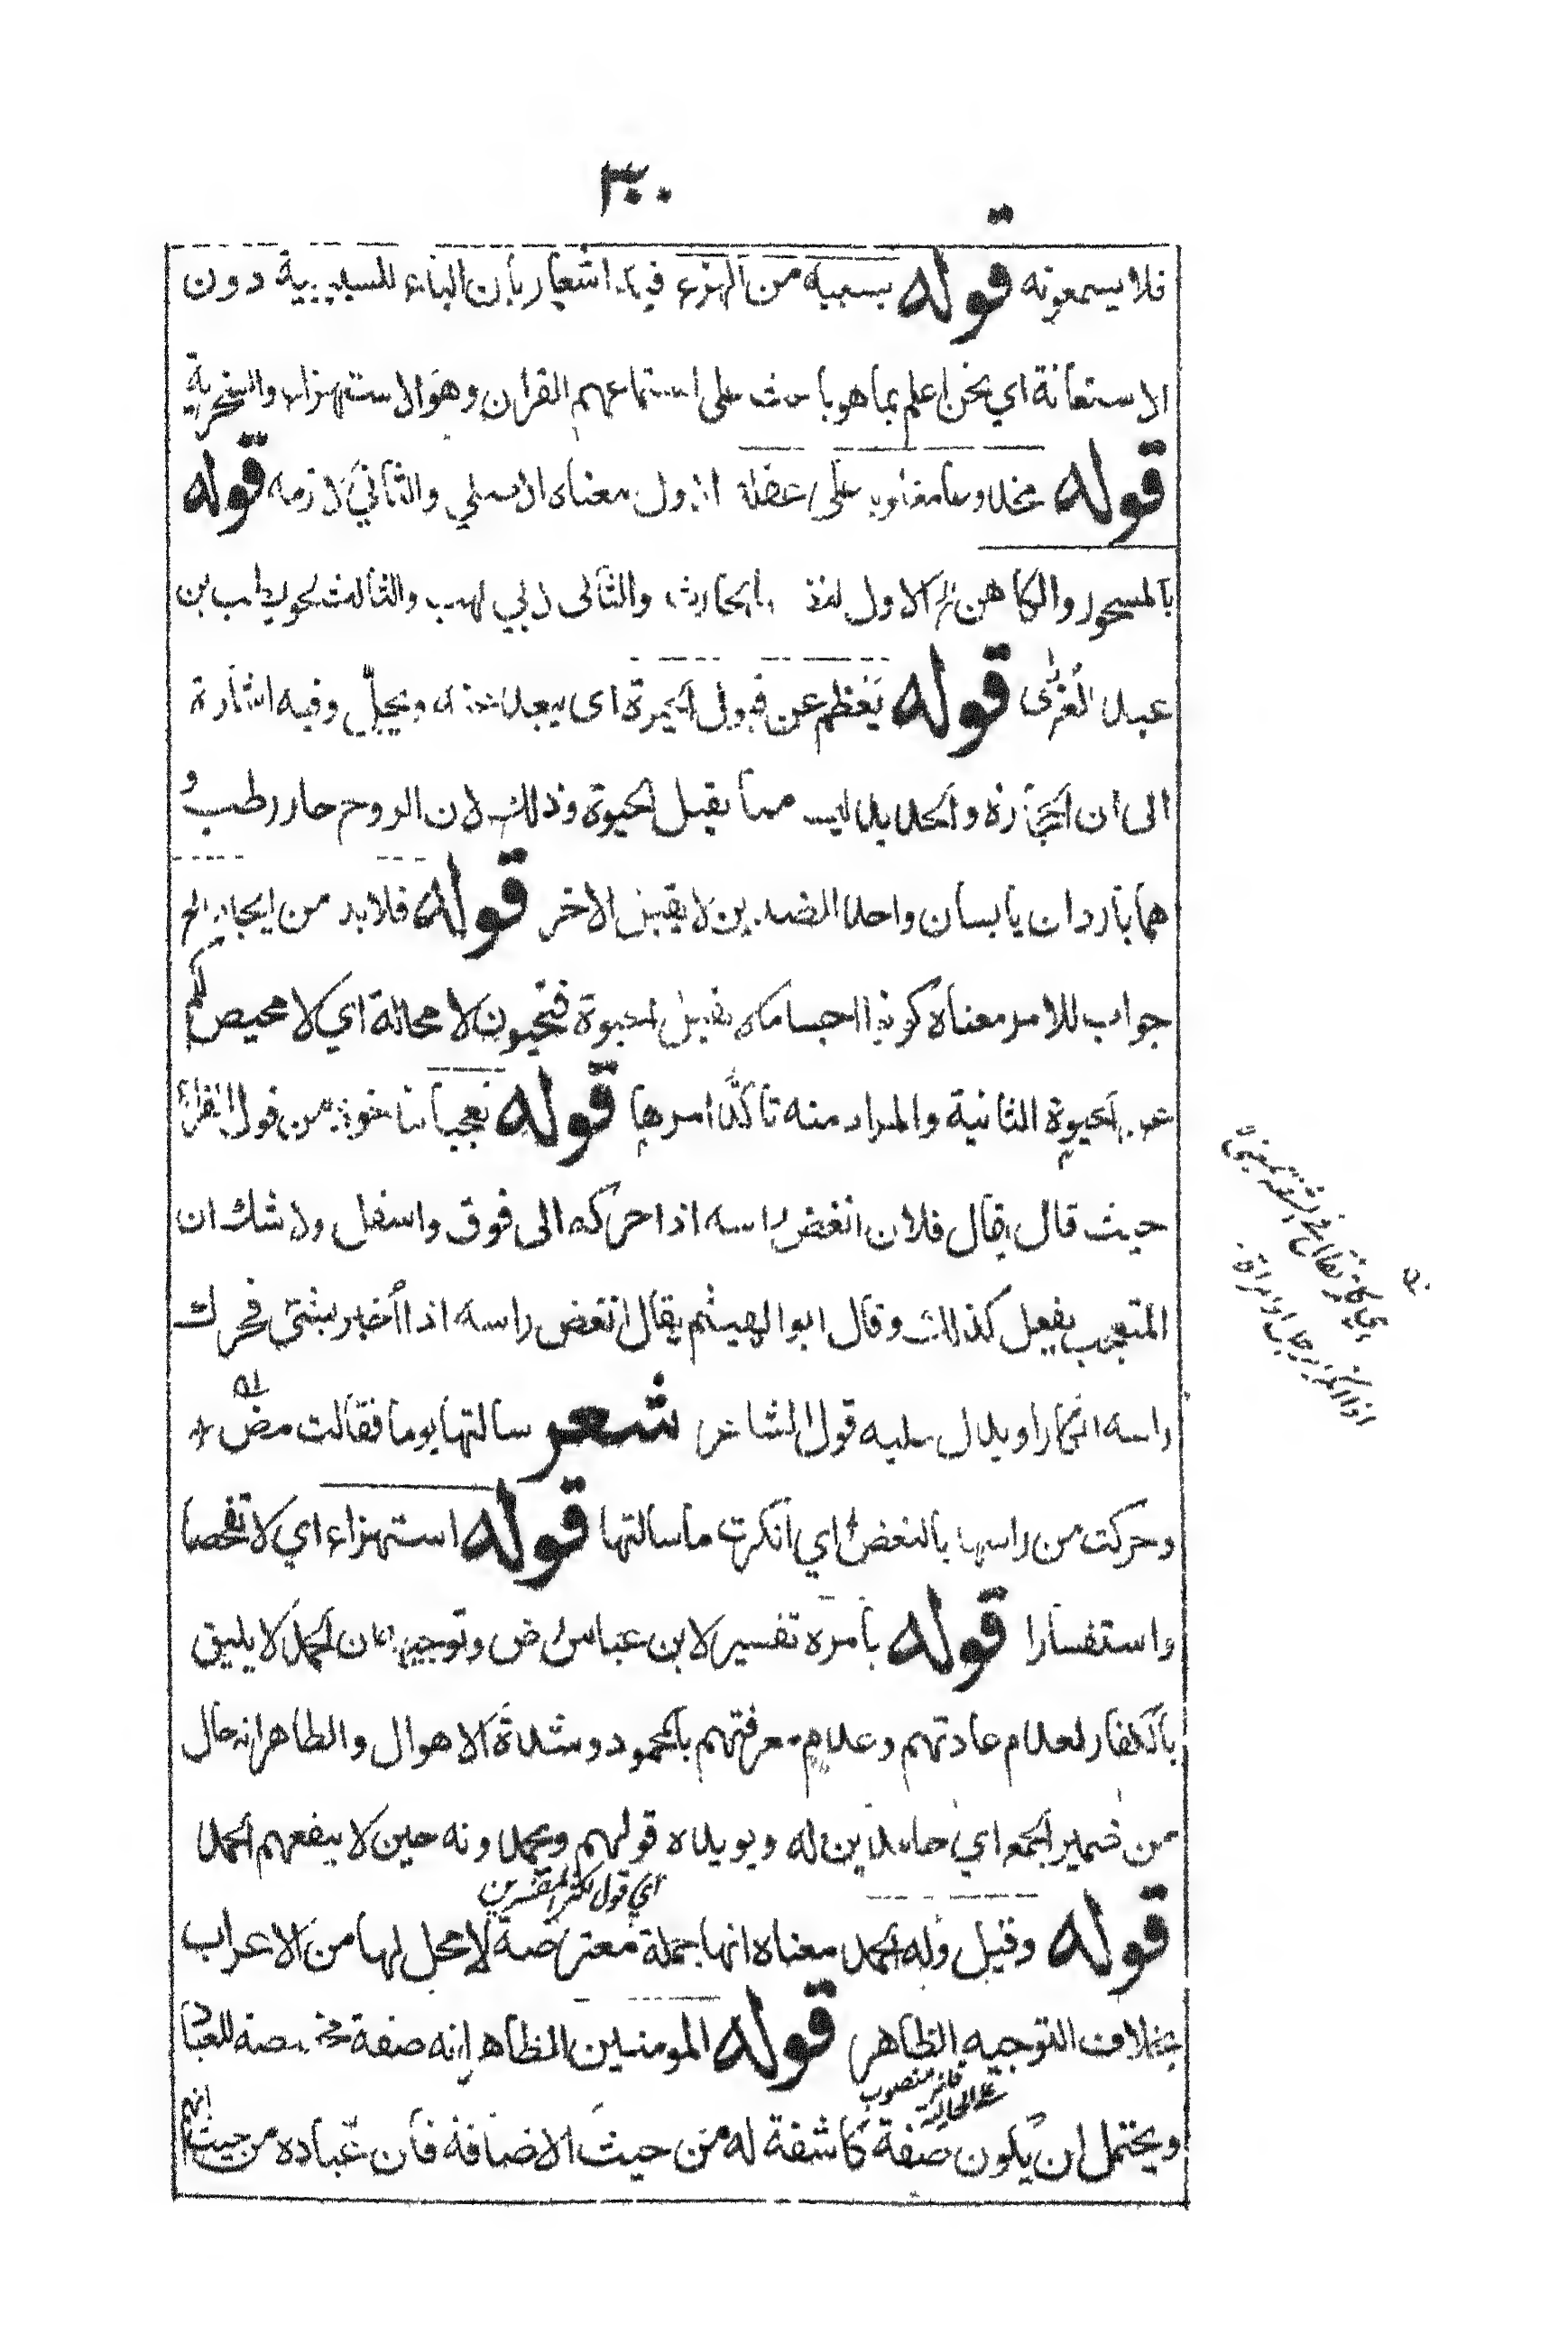 ٣٠٠
فلا يسمعونه قوله بسببه من الهزء فيه اشعار بان الباء للسببية دون
الاستعانة اي نحن اعلم بما هو باعث على استماعهم القران وهو الاستهزاء والسخرية
قوله مخدوعا مغلوبا على عقله الاول معناه الاصلي والثاني لازمه قوله
بالمسحور والكاهن الاول بالحارث والثاني لابي لهب والثالث لحويطب بن
عبد العُزّى قوله يَعْظم عن قبول الحيوة اى يبعد عنه ويجلّ وفيه اشارة
الى ان الحجارة والحديد ليس مما يقبل الحيوة وذلك لان الروح حار رطب و
هما باردان يابسان واحد الضدين لا يقبل الاخر قوله فلابد من ايجاد الخ
جواب للامر معناه كونوا اجساما لا تقبل الحيوة فتحيون لا محالة اي لا محيص لكم
عن الحيوة الثانية والمراد منه تاكّد امرها قوله تعجبا ماخوذ من قول الفراء
حيث قال يقال فلان انغض راسه اذا حركه الى فوق واسفل ولا شك ان
المتعجب يفعل كذلك وقال ابو الهيثم يقال انغض راسه اذا اُخبر بشئ فحرك
راسه انكارا ويدل عليه قول الشاعر شعر سالتها يوما فقالت مض *
وحركت من راسها بالنغض اي انكرت ما سالتها قوله استهزاء اي لا تفحصا
واستفسارا قوله بامره تفسير لابن عباس رض وتوجيهه ان الحمد لا يليق
بالكفار لعدم عادتهم وعدم معرفتهم بالمحمود وشدة الاهوال والظاهر انه حال
من ضمير الجمع اي حامدين له ويويده قولهم ويحمدونه حين لا ينفعهم الحمد
اي قول اكثر المفسرين
قوله وقيل وله الحمد معناه انها جملة معترضة لا محل لها من الاعراب
بخلاف التوجيه الظاهر قوله المومنين الظاهر انه صفة مخصصة للعباد
فانه منصوب
على الحالية
ويحتمل ان يكون صفة كاشفة له من حيث الاضافة فان عباده من حيث انهم